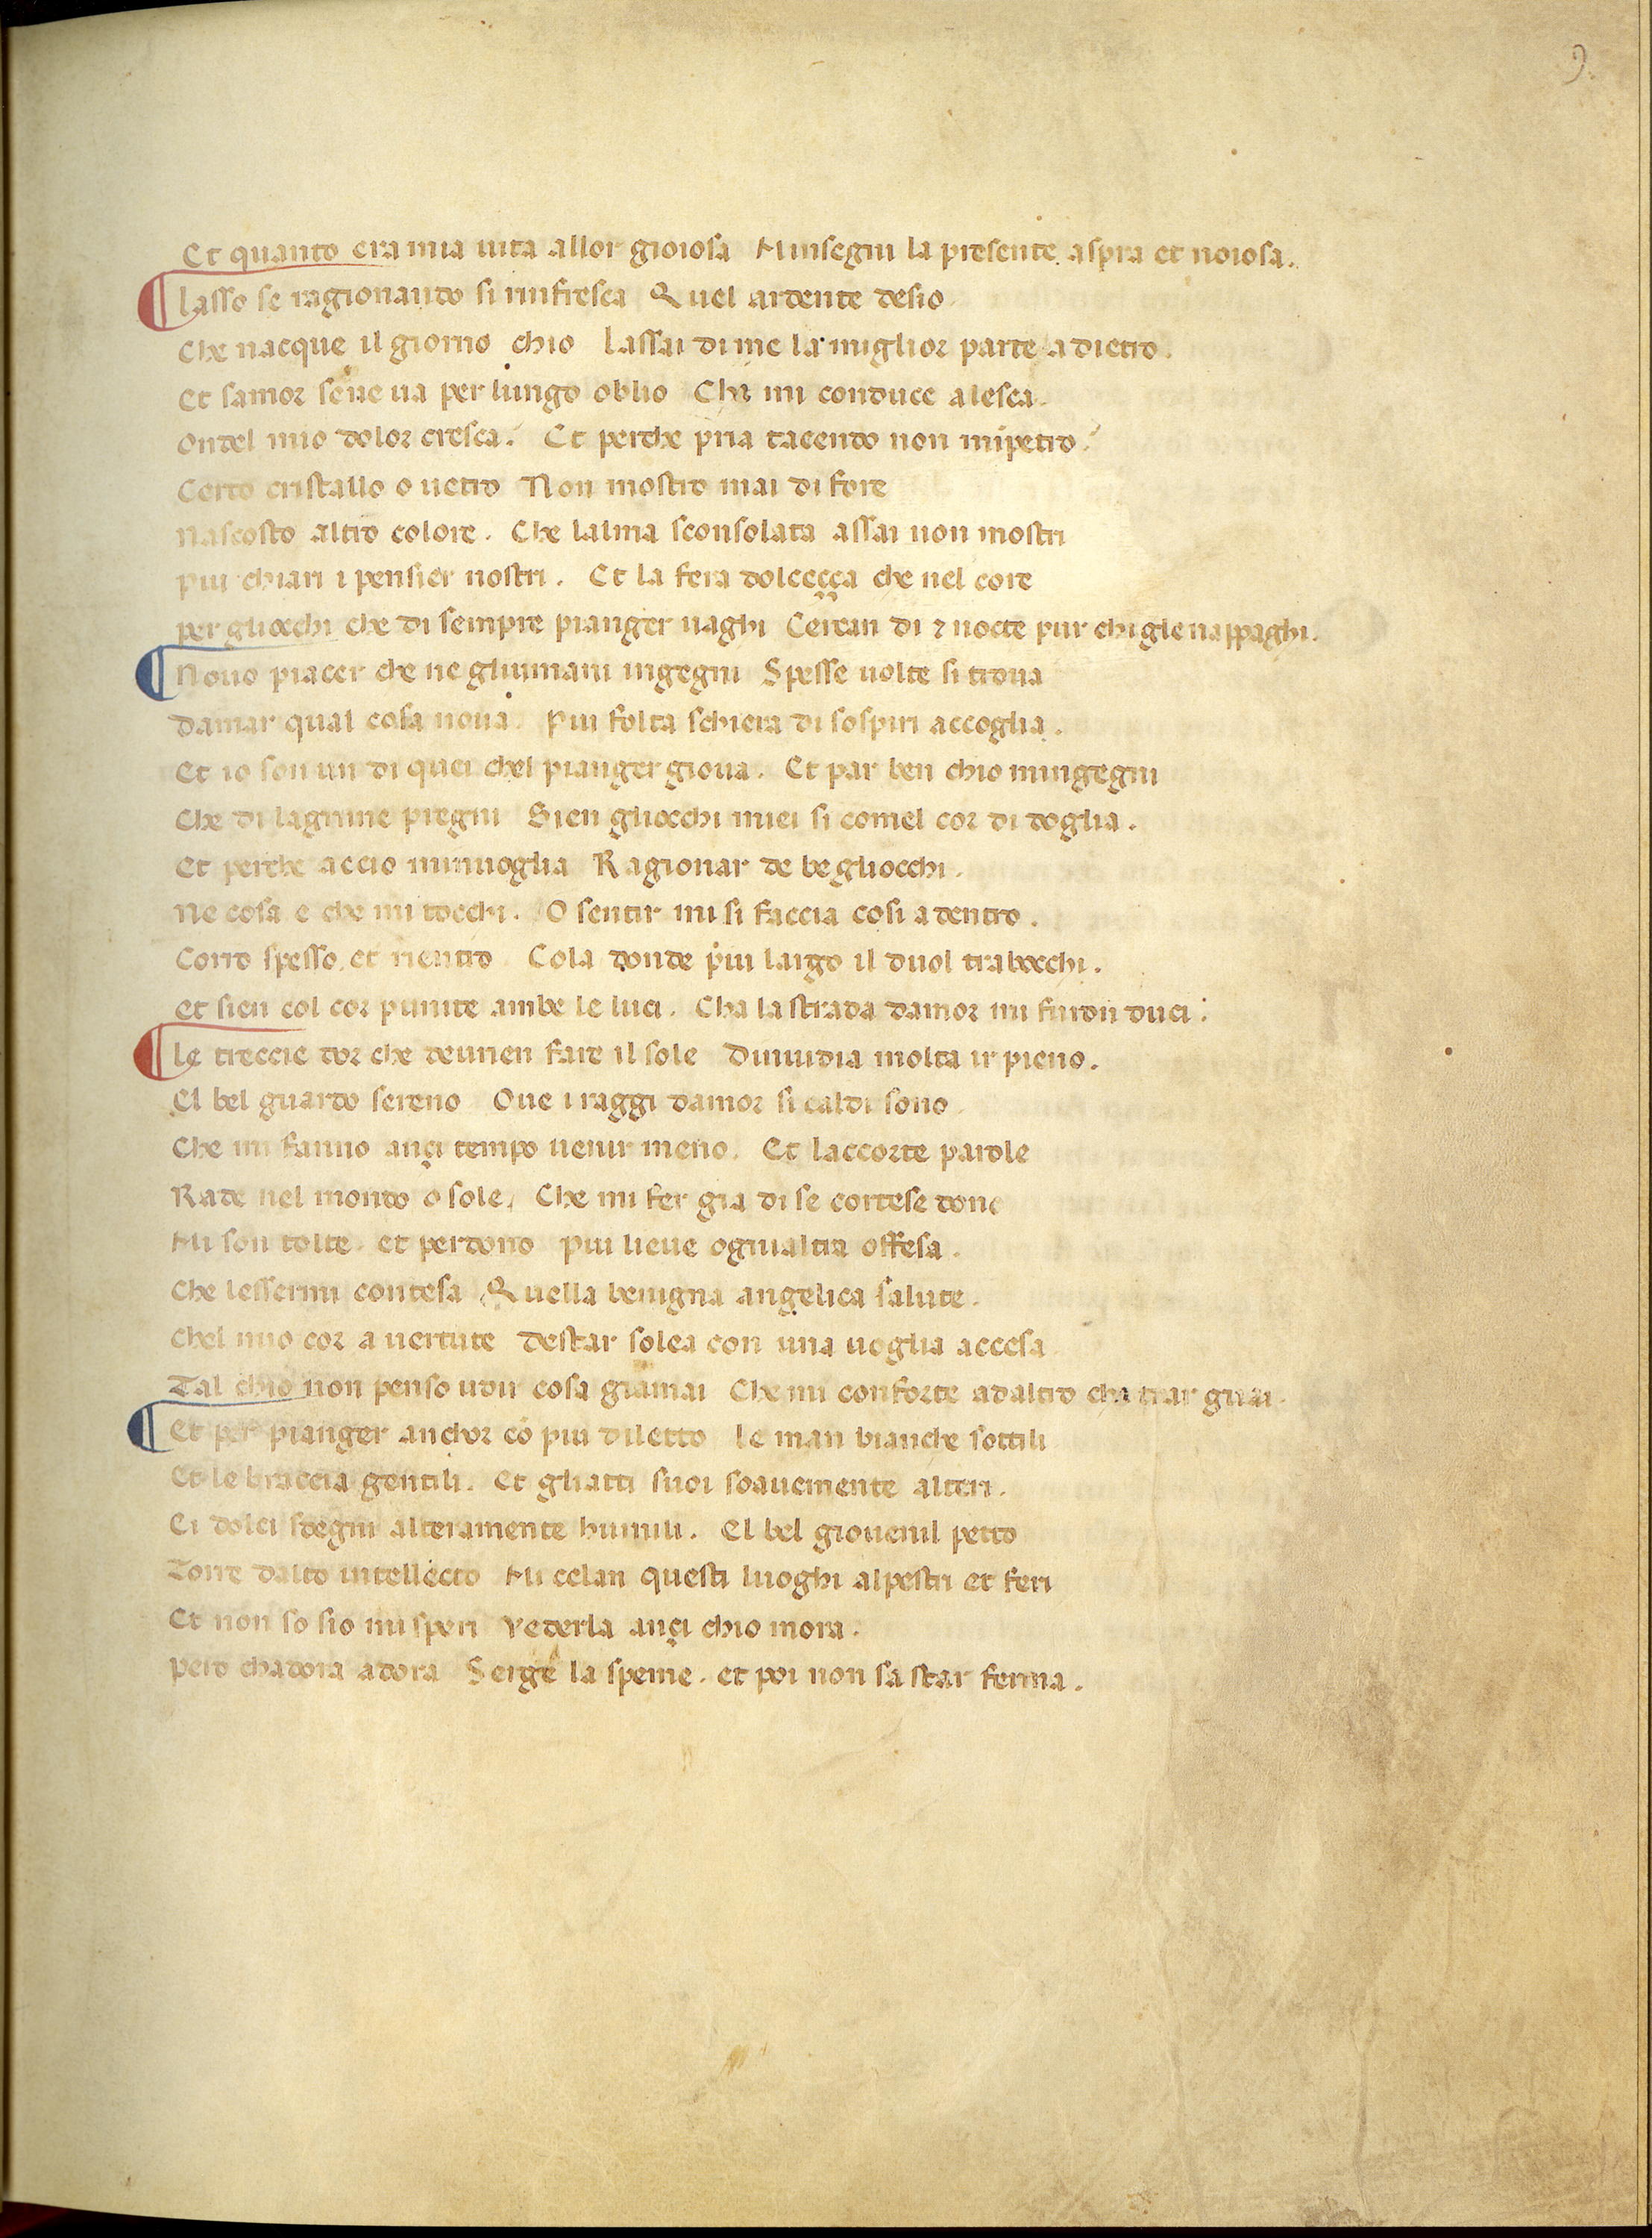 9
Et quanto era mia uita allor gioiosa Minsegni la presente aspra et noiosa.
Lasso se ragionando si rinfresca Quel ardente desio
Che nacque il giorno chio Lassai di me la miglior parte a dietro.
Et samor sene ua per lungo oblio Chi mi conduce alesca.
Ondel mio dolor cresca. Et perche pria tacendo non mipetro.
Certo cristallo o uetro Non mostro mai di fore
nascosto altro colore. Che lalma sconsolata assai non mostri
piu chiari i pensier nostri. Et la fera dolceçça che nel core
per gliocchi che di sempre pianger uaghi Cercan di ⁊ nocte pur chi glie nappaghi.
Nouo piacer che ne gliumani ingegni Spesse uolte si troua
damar qual cosa noua. Piu folta schiera di sospiri accoglia.
Et io son un di quei chel pianger gioua. Et par ben chio mingegni
Che di lagrime pregni Sien gliocchi miei si comel cor di doglia.
Et perche accio minuoglia Ragionar de begliocchi.
Ne cosa e che mi tocchi. O sentir mi si faccia cosi a dentro.
Corro spesso et rientro Cola donde piu largo il duol trabocchi.
et sien col cor punite ambe le luci. Cha la strada damor mi furon duci.
Le treccie dor che deurien fare il sole Dinuidia molta ir pieno.
El bel guardo sereno Oue i raggi damor si caldi sono
Che mi fanno ançi tempo uenir meno. Et laccorte parole
Rade nel mondo o sole. Che mi fer gia di se cortese dono
Mi son tolte. et perdono piu lieue ogniultra offesa.
Che lessermi contesa Quella benigna angelica salute.
Chel mio cor a uertute destar solea con una uoglia accesa
Tal chio non penso udir cosa giamai Che mi conforte adaltro cha trar guai.
Et per pianger anchor cō piu diletto Le man bianche sottili
Et le braccia gentili. Et gliatti suoi soauemente alteri.
Ei dolci sdegni alteramente humili. El bel giouenil petto
Torre dalto intellecto Mi celan questi luoghi alpestri et feri
Et non so sio mi speri Vederla ançi chio mora.
però chadora adora Serge la speme. et poi non sa star ferma.